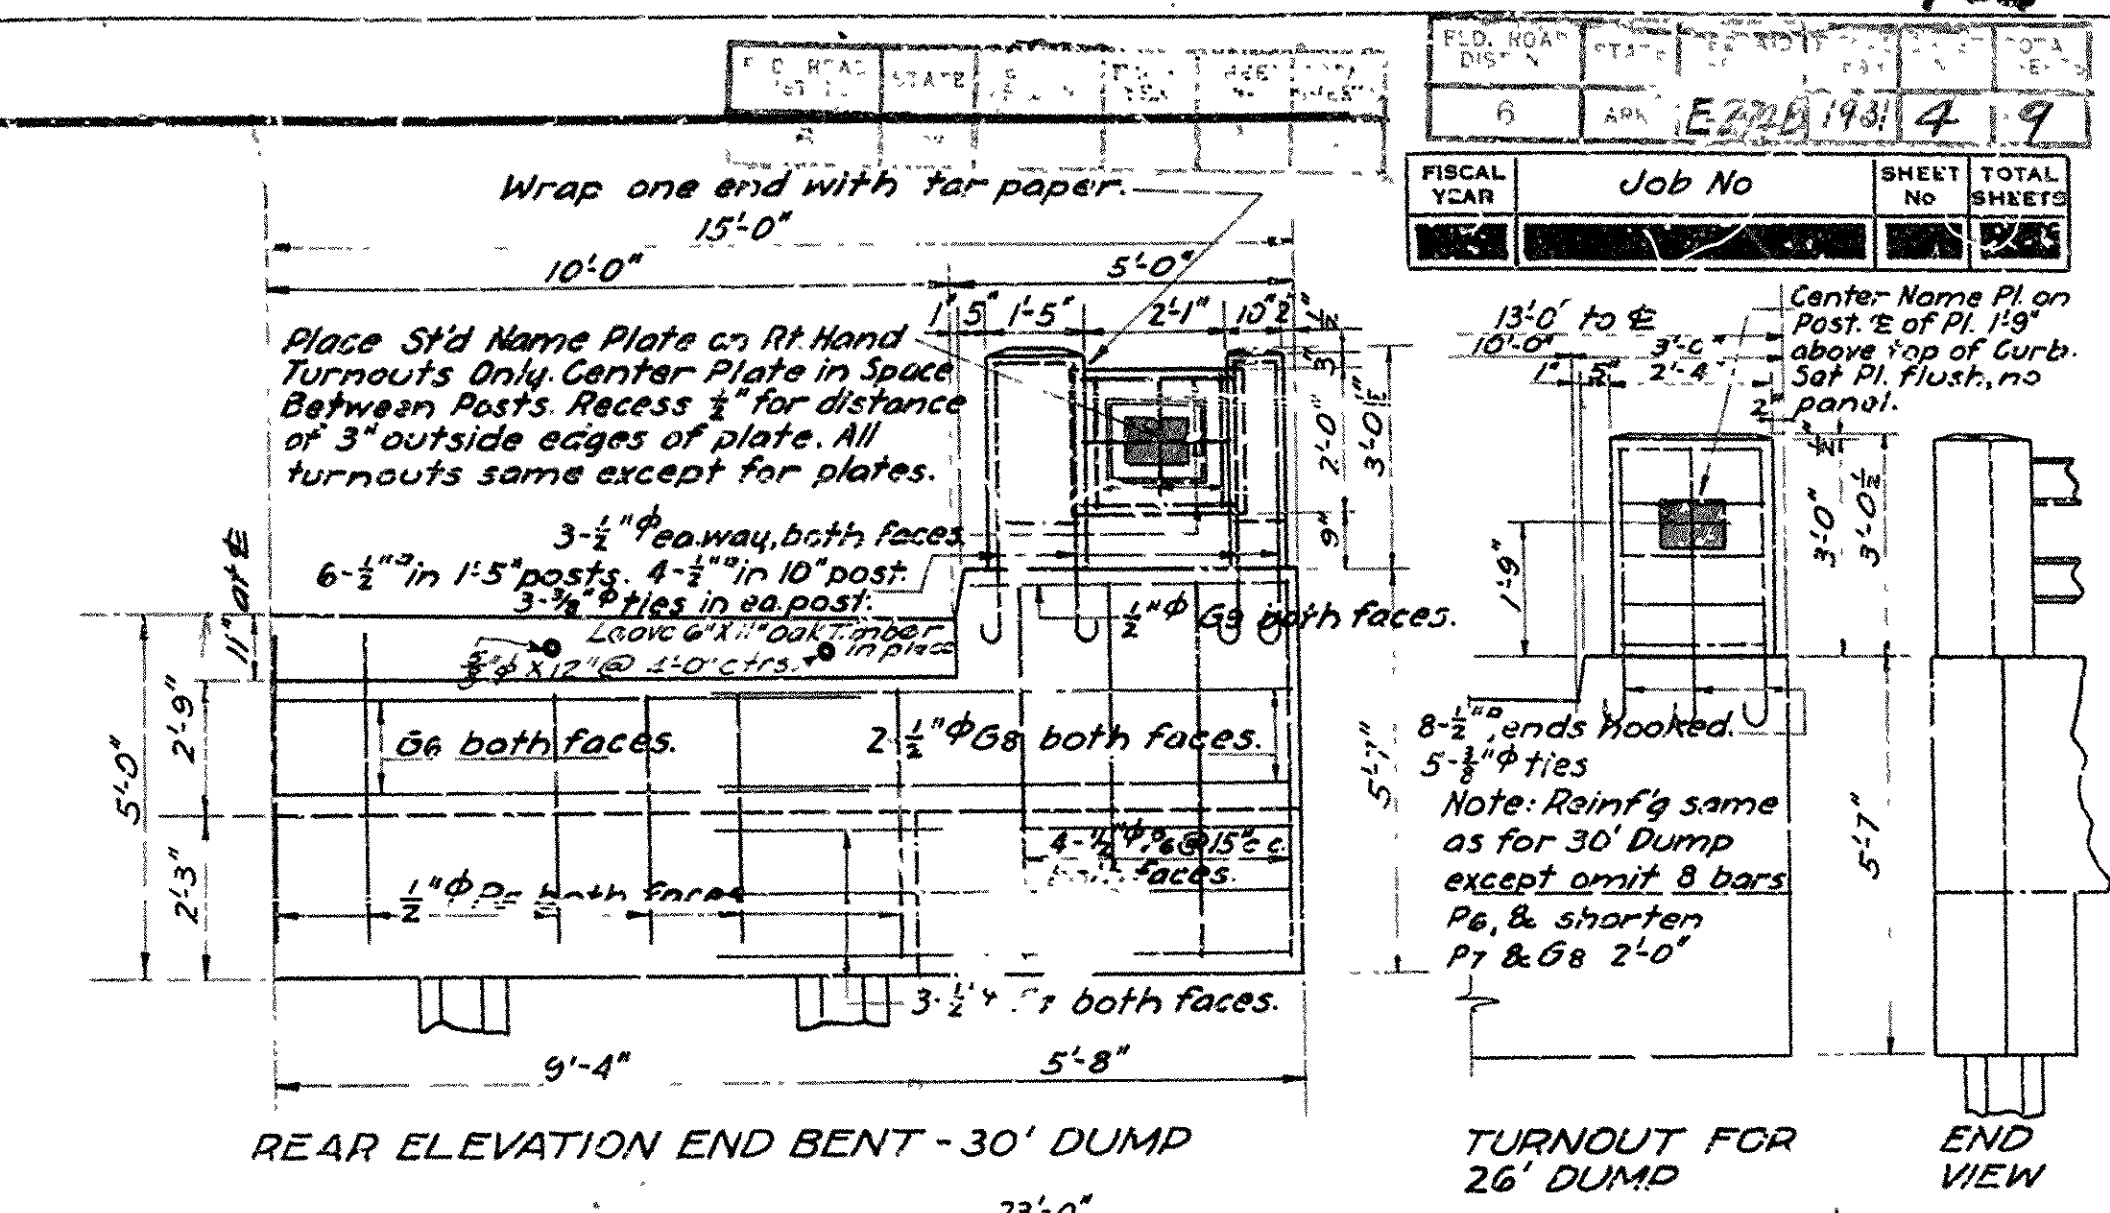 STATE
FED. ROAD
DIST. N
STATE
6
ARK
1931
4
9
FISCAL
YEAR
Job No
SHEET
No
TOTAL
SHEETS
Wrap one end with tar paper.
15'-0"
10'-0"
5'-0"
1" 5" 1'-5" 2'-1" 10" 2" 1/2"
Place St'd Name Plate on Rt. Hand
Turnouts Only. Center Plate in Space
Between Posts. Recess 1/2" for distance
of 3" outside edges of plate. All
turnouts same except for plates.
3"
2'-0"
9"
3'-0 1/2"
3-1/2"ϕ ea. way, both faces.
6-1/2"▫ in 1'-5" posts. 4-1/2"▫ in 10" post.
3-3/8"ϕ ties in ea. post.
1/2"ϕ G9 both faces.
Leave 6"X11" oak Timber
in place
ϕ X 12" @ 1'-0" ctrs.
11" at ℄
5'-0"
2'-9"
2'-3"
G6 both faces.
2-1/2"ϕ G8 both faces.
5'-7"
4-1/2"ϕ P6 @ 15" c.c.
both faces.
1/2"ϕ both faces
3-1/2" both faces.
9'-4"
5'-8"
REAR ELEVATION END BENT - 30' DUMP
Center Name Pl. on
Post. ℄ of Pl. 1'-9"
above top of Curb.
Set Pl. flush, no
panel.
13'-0" to ℄
10'-0" 3'-0"
1" 5" 2'-4"
2"
1/2"
3'-0"
3'-0 1/2
1'-9"
8-1/2"▫, ends hooked.
5-3/8"ϕ ties
Note: Reinf'g same
as for 30' Dump
except omit 8 bars
P6, & shorten
P7 & G8 2'-0"
5'-7"
TURNOUT FOR
26' DUMP
END
VIEW
23'-0"